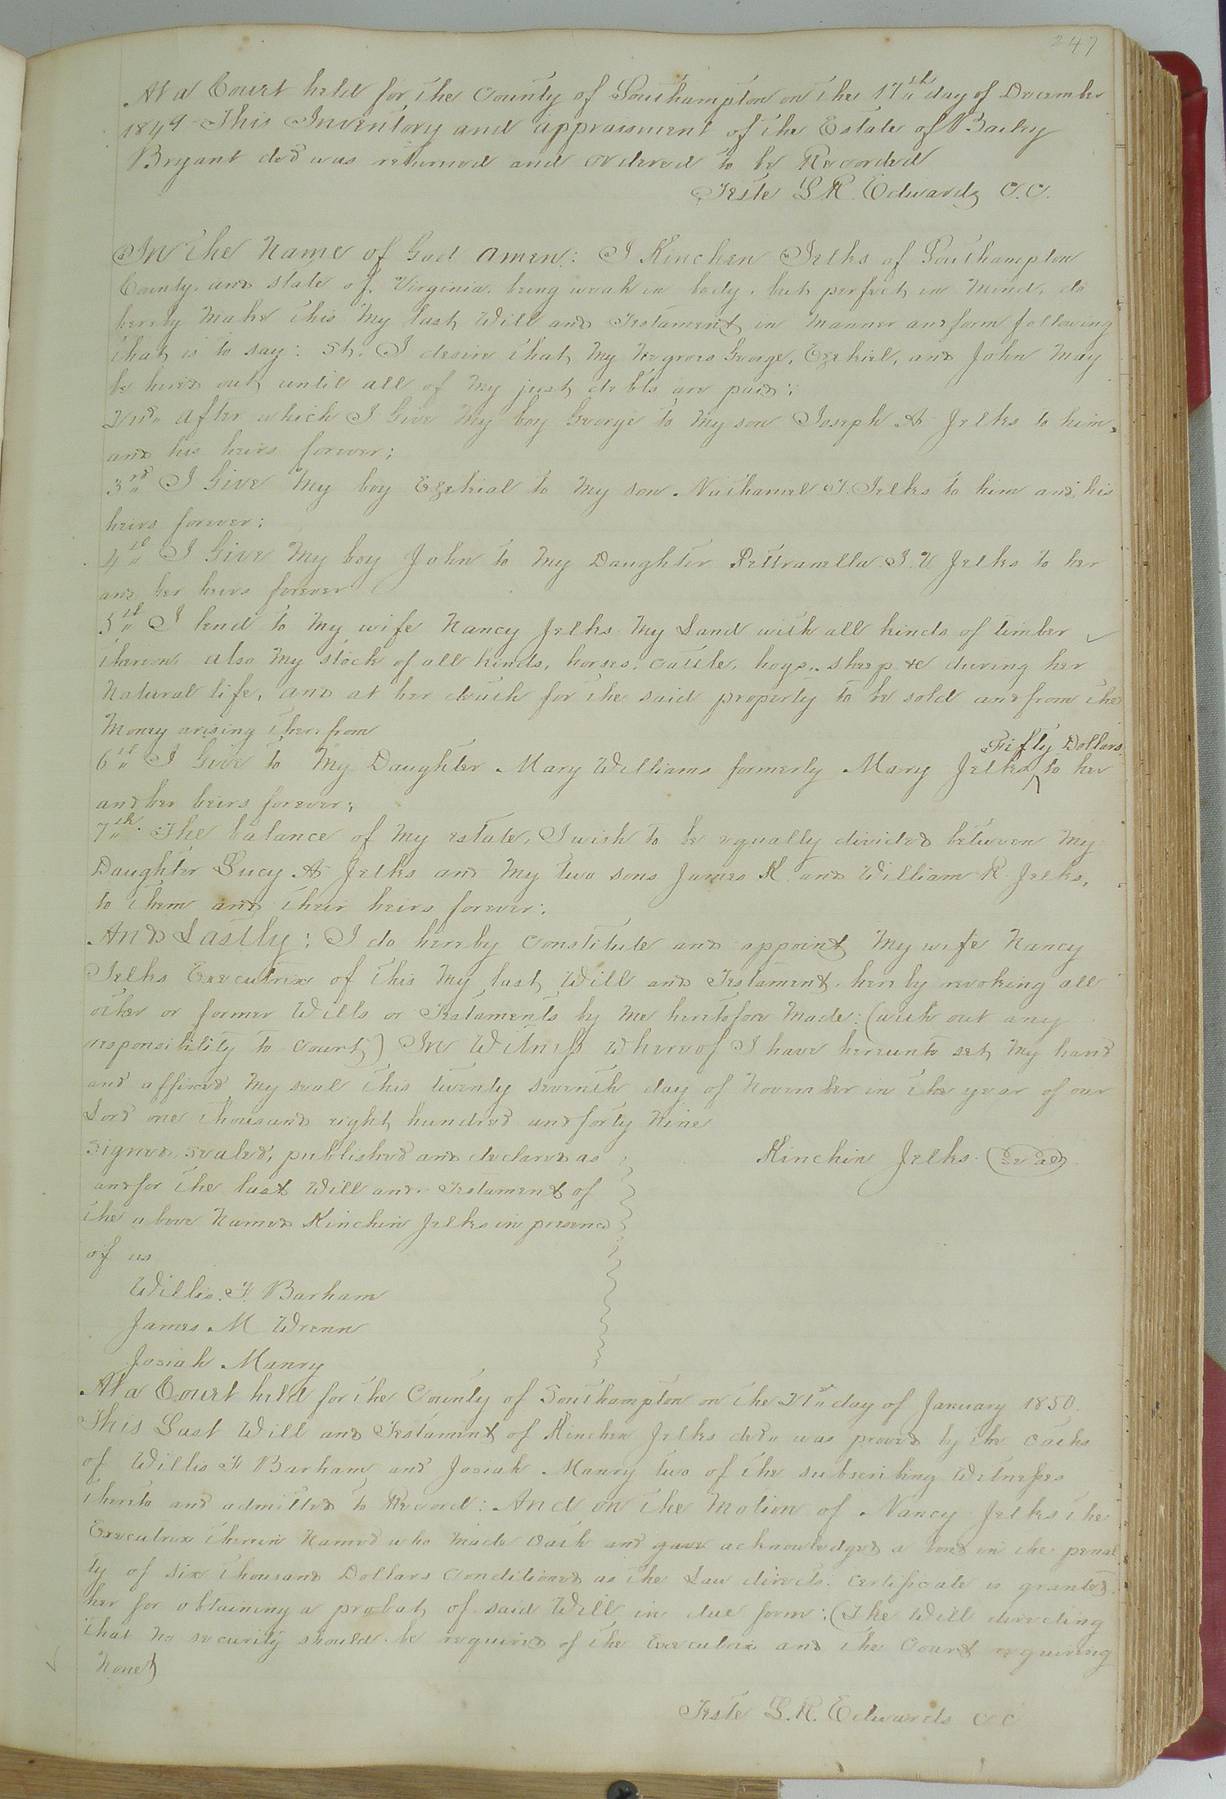 247
At a Court held for the County of Southampton on the 17th day of December
1849 This Inventory and appraisment of the Estate of Bailey
Bryant decd was returned and ordered to be Recorded
Teste L. R. Edwards C.C.
In the Name of God Amen: I Kinchen Jelks of Southampton
County, and state of Virginia, being weak in body, but perfect in Mind, do
hereby Make this My last Will and Testament in Manner and form following
that is to say: I desire that My Negroes George, Ezekiel, and John May
be hired out until all of My just debts are paid:
2nd After which I Give My boy George to My son Joseph A Jelks to him
and his heirs forever;
3rd I Give My boy Ezekial to My son Nathaniel T. Jelks to him and his
heirs forever;
4th I Give My boy John to My Daughter Jelks to her
and her heirs forever
5th I lend to My wife Nancy Jelks My Land with all kinds of timber
thereon also My stock of all kinds, horses, cattle, hogs, sheep &c during her
Natural life, and at her death for the said property to be sold and from the
Money arising therefrom
6th I Give to My Daughter Mary Williams formerly Mary Jelks ^ Fifty Dollars to her
and her heirs forever;
7th The balance of My estate, I wish to be equally divided between My
Daughter Lucy A Jelks and My two sons James K. and William R. Jelks,
to them and their heirs forever;
And Lastly; I do hereby constitute and appoint My wife Nancy
Jelks Executrix of this My last Will and Testament, hereby revoking all
other or former Wills or Testaments by Me heretofore Made: (with out any
responsibility to court) In Witness whereof I have hereunto set My hand
and affixed My seal this twenty seventh day of November in the year of our
Lord one thousand eight hundred and forty Nine
Signed, sealed, published and declared as
and for the last Will and Testament of
the above Named Kinchin Jelks in presence
of us
Kinchin Jelks (Seal)
Willis F. Barham
James M Wrenn
Josiah Manry
At a Court held for the County of Southampton on the 21st day of January 1850.
This Last Will and Testament of Kinchen Jelks decd was proved by the Oaths
of Willis F Barham and Josiah Manry two of the subscribing Witnesses
thereto and admitted to Record: And on the Motion of Nancy Jelks the
Executrix therein Named who Made Oath and gave acknowledged a bond in the penal
ty of six thousand Dollars Conditioned as the Law directs. Certificate is granted
her for obtaining a probat of said Will in due form: (The Will directing
that no security should be required of the Executrix and the Court requiring
None)
Teste L. R. Edwards C C